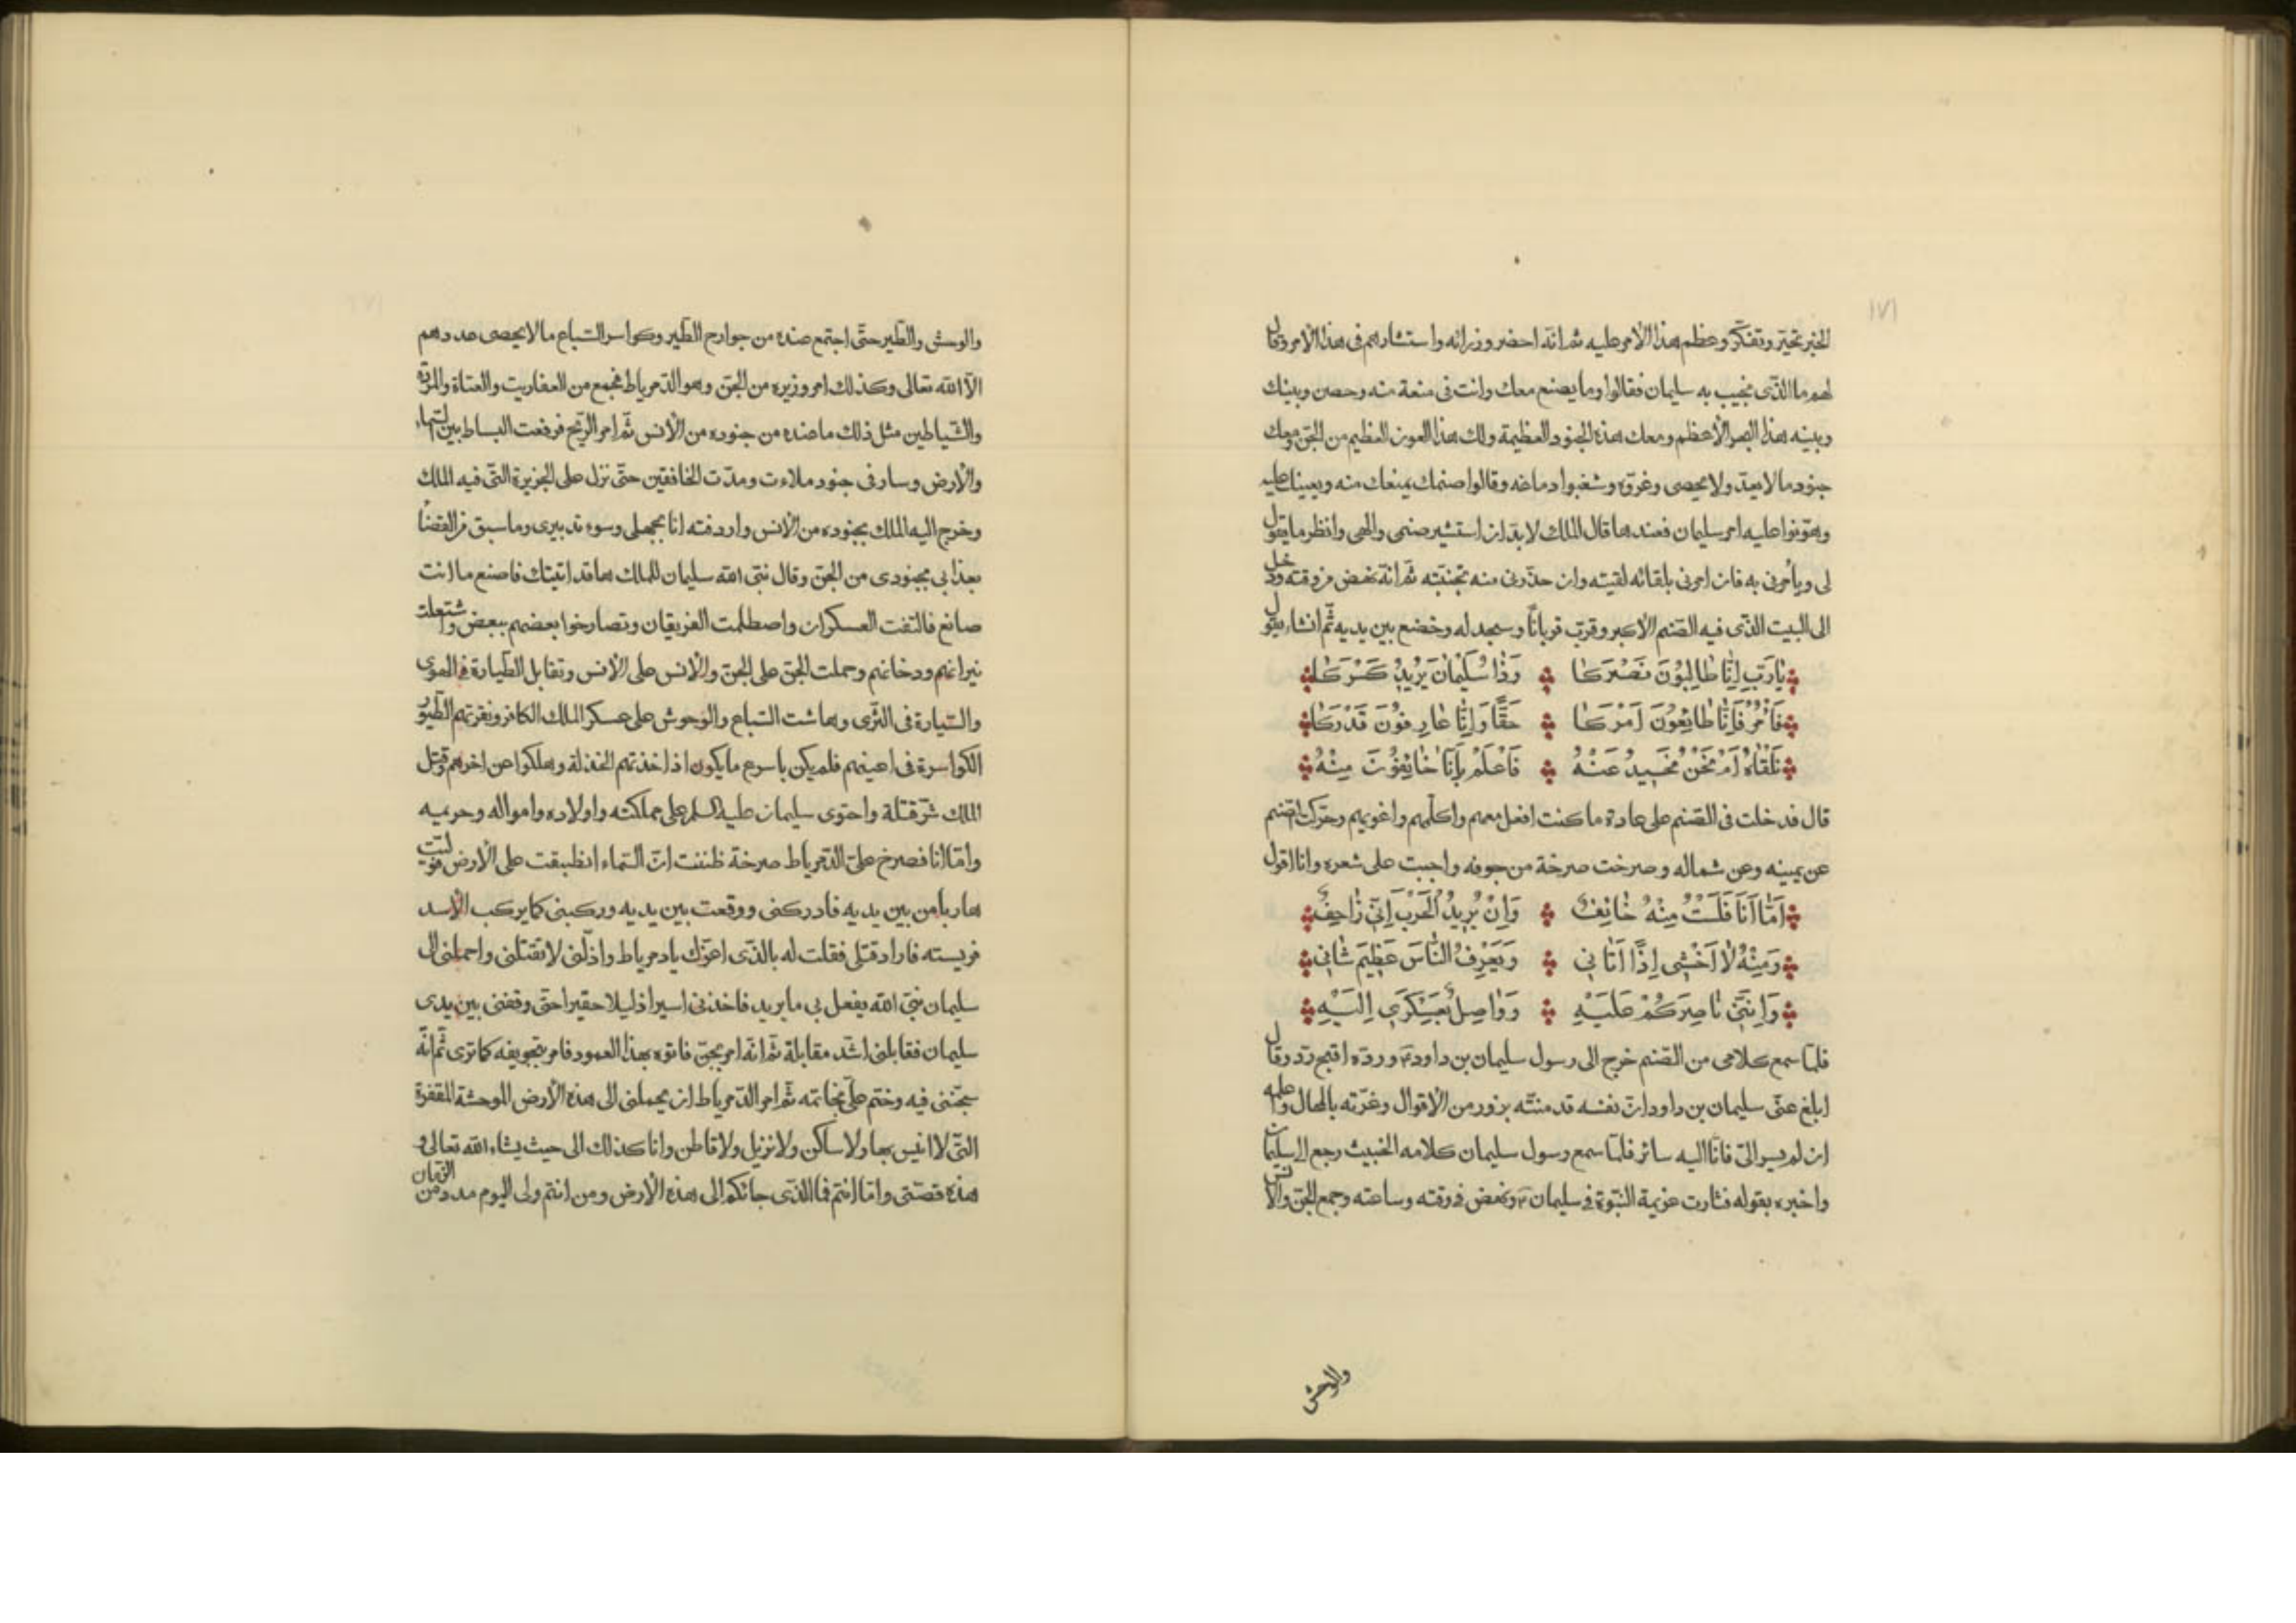 ١٧١
الخبر تحيّر وتفكّر وعظم هذا الأمر عليه ثم انّه احضر وزرائه واستشارهم فى هذا الأمر وقال
لهم ما الذّى نجيب به سليمان فقالوا وما يصنع معك وانت فى منعة منه وحصن وبينك
وبينه هذا البحر الأعظم ومعك هذه الجنود العظيمة ولك هذا العون العظيم من الجنّ ومعك
جنود ما لا يعدّ ولا يحصى وغرّوه وشغبوا دماغه وقالوا صنمك يمنعك منه ويعينك عليه
وهوّنوا عليه امر سليمان فعندها قال الملك لا بدّ ان استشير صنمى والهى وانظر ما يقول
لى ويأمرنى به فان امرنى بلقائه لقيته وان حذّرنى منه تجنبّته ثمّ انّه نهض من وقته ودخل
الى البيت الذّى فيه الصّنم الأكبر وقرّب قرباناً وسجد له وخضع بين يديه ثمّ انشاء يقول
يَا رَبِّ اِنَّا طَالِبُوْنَ نَصْرَكَا وَذَا سُلَيْمَانَ يَرُيْدُ كَسْرَكَا
فَأْمُرْ فَاِنَّا طَائِعُوْنَ اَمْرَكَا حَقًّا وَاِنَّا عَارِفُوْنَ قَدْرَكَا
نَلْقَاهُ اَمْ نَحْنُ نَحَيدُ عَنْهُ فَاعْلَمْ بِاَنَّا خَائِفُوْنَ مِنْهُ
قال فدخلت فى الصّنم على عادة ما كنت افعل معهم واكلّمهم واغويهم وحرّكت الصّنم
عن يمينه وعن شماله وصرخت صرخة من جوفه واجبت على شعره وانا اقول
اَمَّا اَنَا فَلَسْتُ مِنْهُ خَائِفُ وَاِنْ يُرِيدُ الْحَرْبَ اِنّىِ زَاحِفُ
وَمِنْهُ لَا اَخْشَى اِذَا اَتَانِي وَيَعْرِفُ النَّاسَ عَظِيمَ شَانِي
وَاِنَّنِى نَاصِرَكُمْ عَلَيْهِ وَوَاصِلٌ بِعَسْكَرَي اِلَيْهِ
فلمّا سمع كلامى من الصّنم خرج الى رسول سليمان بن داود وردّه اقبح ردّ وقال
ابلغ عنّى سليمان بن داود انّ نفسه قد منتّه بزور من الأقوال وغرّته بالمحال واعلمه
ان لم يسر الىّ فانّا اليه سائر فلمّا سمع رسول سليمان كلامه الخبيث رجع الى سليمان
واخبره بقوله فثارت عزيمة النبّوة فى سليمان ونهض فى وقته وساعته وجمع الجنّ والأنس
والوحش
والوحش والطّير حتّى اجتمع عنده من جوارح الطّير وكواسر السّباع ما لا يحصى عددهم
الّا اللّه تعالى وكذلك امر وزيره من الجنّ وهو الدّمرياط فجمع من العفاريت والعتاة والمردة
والشّياطين مثل ذلك ما عنده من جنوده من الأنس ثمّ امر الرّيح فرفعت البساط بين السّماء
والأرض وسار فى جنود ملاءت ومدّت الخافقين حتّى نزل على الجزيرة التّى فيه الملك
وخرج اليه الملك بجنوده من الأنس واردفته انا بجهلى وسوء تدبيرى وما سبق من القضا
بعذابى بجنودى من الجنّ وقال نبّى اللّه سليمان للملك ها قد اتيتك فاصنع ما انت
صانع فالتقت العسكران واصطلمت الفريقان وتصارخوا بعضهم ببعض واشتعلت
نيرانهم ودخانهم وحملت الجنّ على الجنّ والأنس على الأنس وتقابل الطّيارة فى الهوى
والسّيارة فى الثّرى وهاشت السّباع والوحوش على عسكر الملك الكافر ونقرتهم الطّيور
الكواسرة فى اعينهم فلم يكن باسرع ما يكون اذ اخذتهم الخذلة وهلكوا عن اخرهم وقتل
الملك شرّ قتلة واحتوى سليمان عليه السلم على مملكته واولاده وامواله وحريميه
وامّا انا فصرخ علىّ الدّمرياط صرخة ظننت انّ السّماء انطبقت على الأرض فوليّت
هاربا من بين يديه فادركنى ووقعت بين يديه وركبنى كما يركب الأسد
فريسته فاراد قتلى فقلت له بالذّى اعزّك يا دمرياط واذلّنى لا تقتلنى واحملنى الى
سليمان نبىّ اللّه يفعل بى ما يريد فاخذنى اسيرا ذليلا حقيرا حتّى وقفنى بين يدى
سليمان فقابلنى اشدّ مقابلة ثمّ انّه امر بجنّ فاتوه بهذا العمود فامر بتجويفه كما ترى ثمّ انّه
سجّننى فيه وختم علىّ بخاتمه ثمّ امر الدّمرياط ان يحملنى الى هذه الأرض الموحشة المقفرة
التّى لا انيس بها ولا ساكن ولا نزيل ولا قاطن وانا كذلك الى حيث يشاء اللّه تعالى و
هذه قصّتى وامّا انتم فما الذّى جائكم الى هذه الأرض ومن انتم ولى اليوم مدد من الزّمان